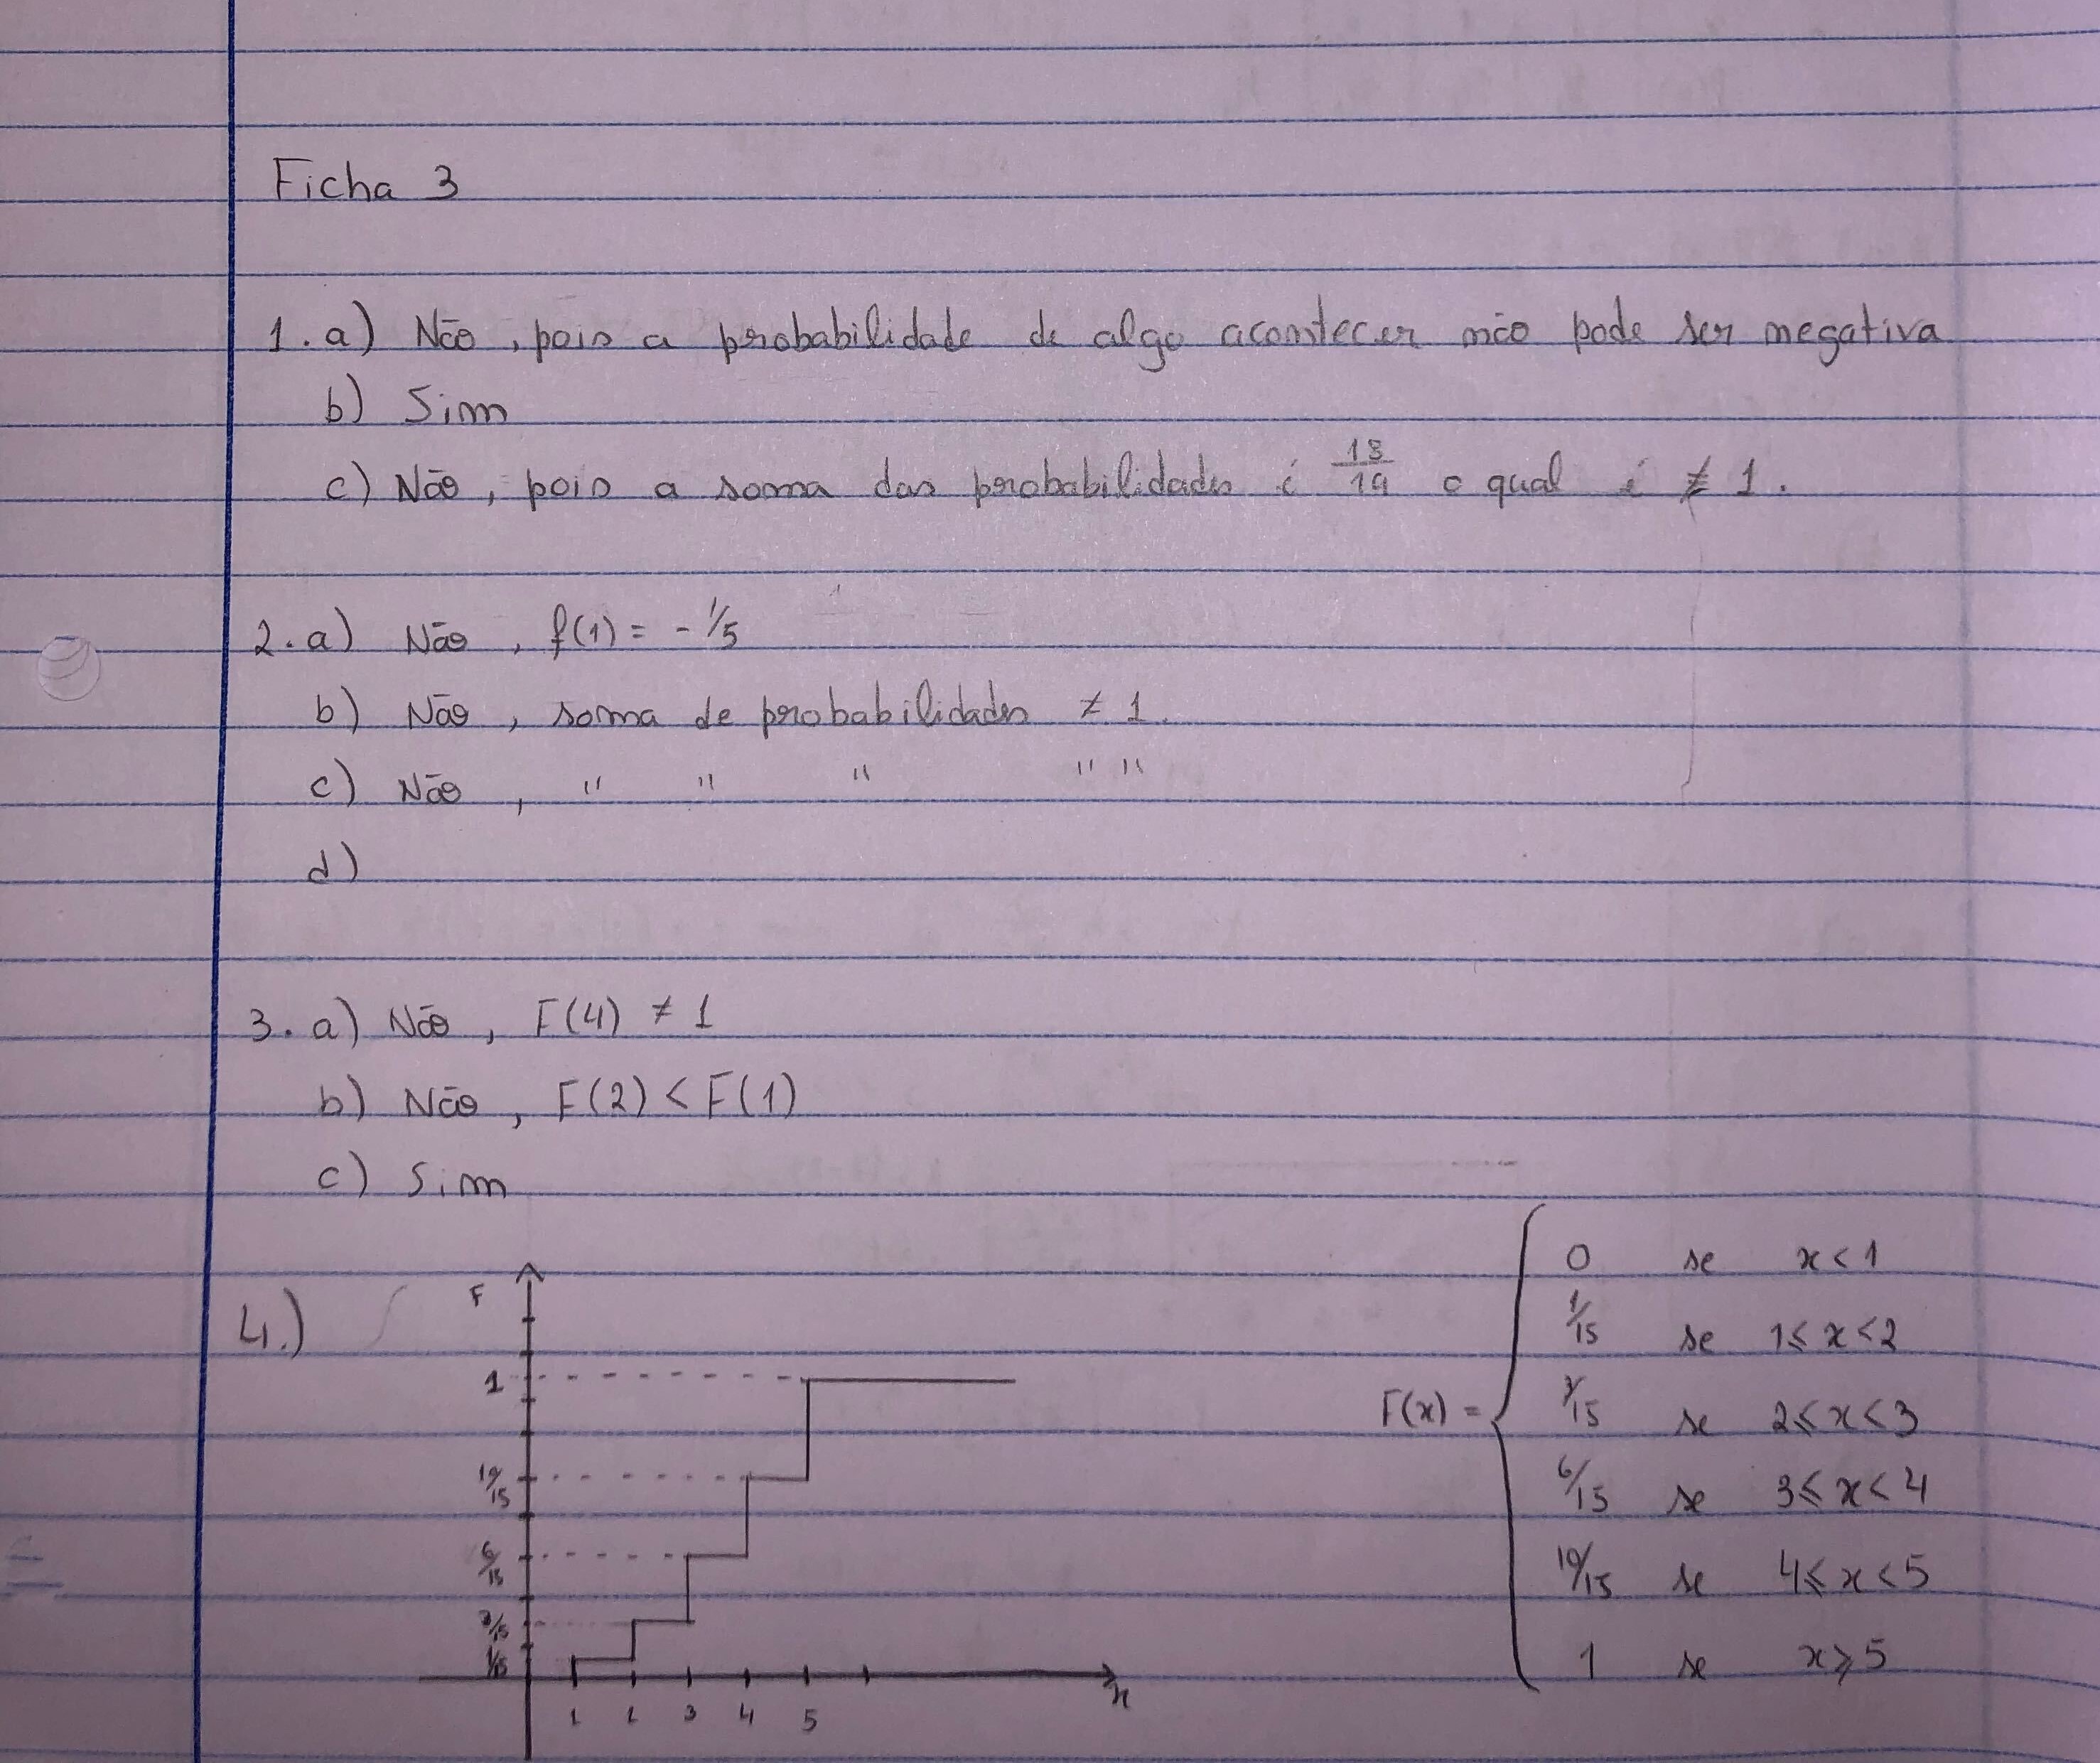 Ficha 3
1. a) Não, pois a probabilidade de algo acontecer não pode ser negativa
b) Sim
c) Não, pois a soma das probabilidades é 18/19 o qual é ≠ 1.
2. a) Não, f(1) = - 1/5
b) Não, soma de probabilidades ≠ 1.
c) Não, " " " " "
d)
3. a) Não, F(4) ≠ 1
b) Não, F(2) < F(1)
c) Sim
4.)
F
1
10/15
6/15
3/15
1/15
1 2 3 4 5
x
F(x) =
0 se x < 1
1/15 se 1 ≤ x < 2
3/15 se 2 ≤ x < 3
6/15 se 3 ≤ x < 4
10/15 se 4 ≤ x < 5
1 se x ≥ 5